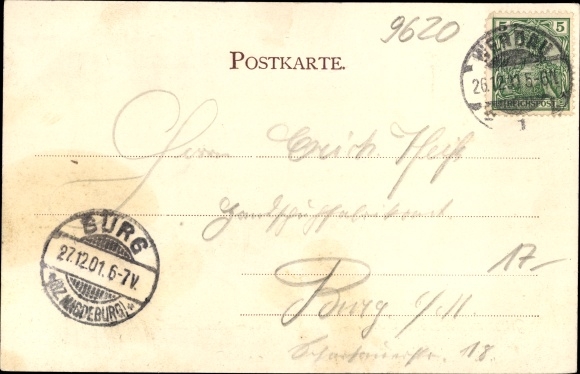 9620
5 5
REICHSPOST
WERDAU
26.12.01.5-6N.
1
POSTKARTE.
Herrn Erich
Handschuhfabrikant
BURG
27.12.01.6-7V.
(BZ. MAGDEBURG)
17-
Burg b/M.
18.